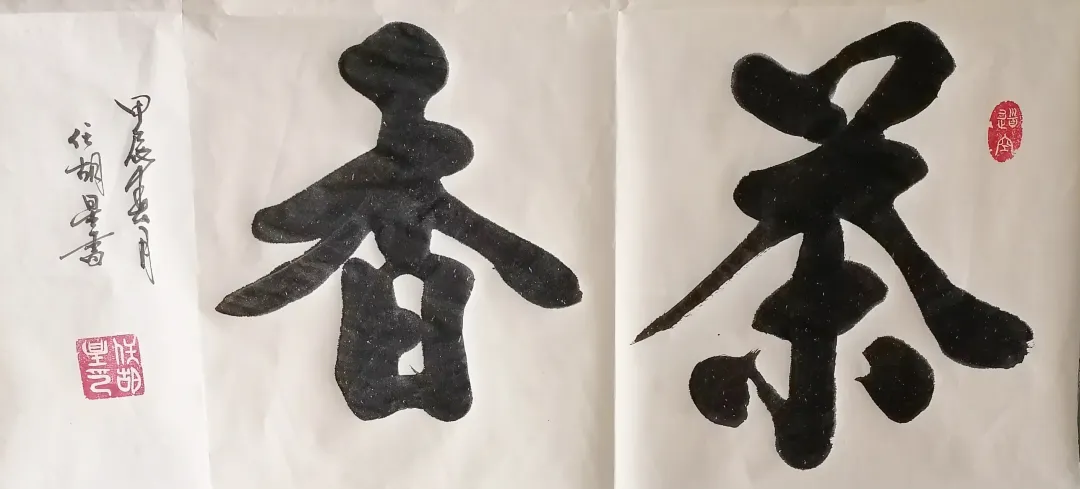 茶香
甲辰春月
任胡星書
任胡
星印